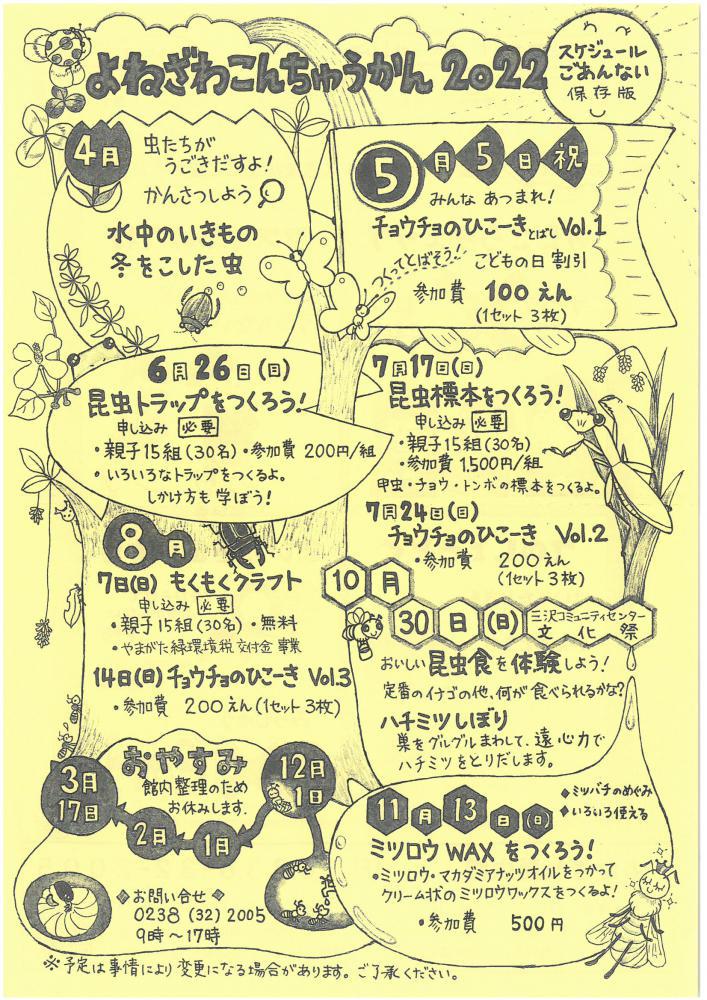 よねざわこんちゅうかん 2022
スケジュール
ごあんない
保存版
4月
虫たちが
うごきだすよ!
かんさつしよう
水中のいきもの
冬をこした虫
5月5日祝
みんな あつまれ!
チョウチョのひこーきとばし Vol.1
つくってとばそう!
こどもの日 割引
参加費 100えん
(1セット 3枚)
6月26日(日)
昆虫トラップをつくろう!
申し込み 必要
・親子15組(30名)・参加費 200円/組
・いろいろなトラップをつくるよ。
しかけ方も 学ぼう!
7月17日(日)
昆虫標本をつくろう!
申し込み 必要
・親子15組(30名)
・参加費 1,500円/組
甲虫・チョウ・トンボの標本をつくるよ。
7月24日(日)
チョウチョのひこーき Vol.2
・参加費 200えん
(1セット3枚)
8月
7日(日) もくもくクラフト
申し込み 必要
・親子15組(30名)・無料
・やまがた緑環境税交付金事業
14日(日)チョウチョのひこーき Vol.3
・参加費 200えん(1セット3枚)
10月
30日(日)
三沢コミュニティセンター
文化祭
おいしい昆虫食を体験しよう!
定番のイナゴの他、何が食べられるかな?
ハチミツしぼり
巣をグルグルまわして、遠心力で
ハチミツをとりだします。
おやすみ
館内整理のため
お休みします.
12月
1日
1月
2月
3月
17日
11月13日(日)
◆ミツバチのめぐみ
◆いろいろ使える
ミツロウWAXをつくろう!
・ミツロウ・マカダミアナッツオイルをつかって
クリーム状のミツロウワックスをつくるよ!
・参加費 500円
◆お問い合せ◆
0238(32)2005
9時〜17時
※予定は事情により変更になる場合があります。ご了承ください。